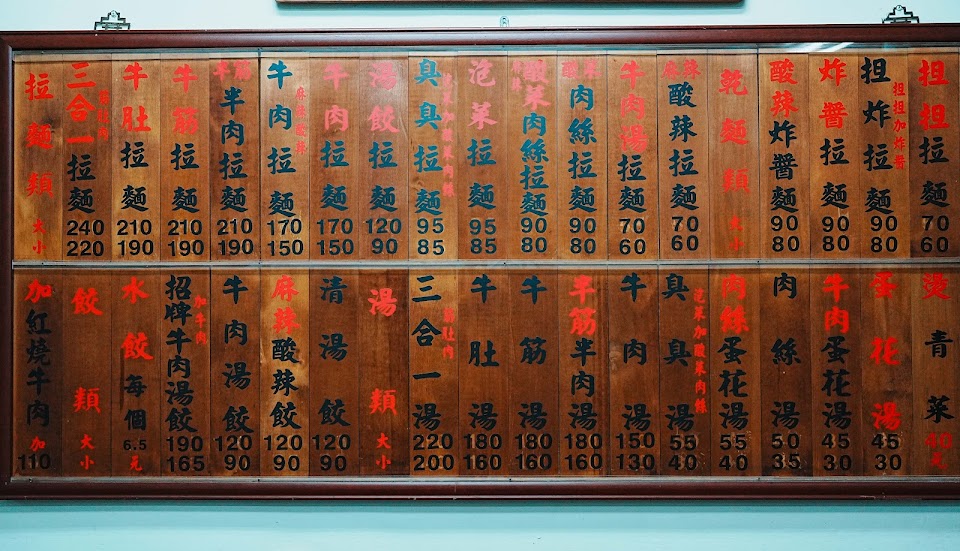 拉麵類 大 小
三合一拉麵 筋肚肉 240 220
牛肚拉麵 210 190
牛筋拉麵 210 190
牛筋半肉拉麵 210 190
牛肉拉麵 麻辣酸菜 170 150
牛肉拉麵 170 150
湯餃拉麵 120 90
臭臭拉麵 泡菜加酸菜肉絲 95 85
泡菜拉麵 95 85
酸菜肉絲拉麵 90 80
肉絲拉麵 90 80
牛肉湯拉麵 70 60
麻辣酸辣拉麵 70 60
乾麵類 大 小
酸辣炸醬麵 90 80
炸醬拉麵 90 80
担炸拉麵 担担加炸醬 90 80
担担拉麵 70 60
加紅燒牛肉 加 110
餃類 大 小
水餃每個 6.5 元
招牌牛肉湯餃 加牛肉 190 165
牛肉湯餃 120 90
麻辣酸辣餃 120 90
清湯餃 120 90
湯類 大 小
三合一湯 筋肚肉 220 200
牛肚湯 180 160
牛筋湯 180 160
半筋半肉湯 180 160
牛肉湯 150 130
臭臭湯 泡菜加酸菜肉絲 55 40
肉絲蛋花湯 55 40
肉絲湯 50 35
牛肉蛋花湯 45 30
蛋花湯 45 30
燙青菜 40 元